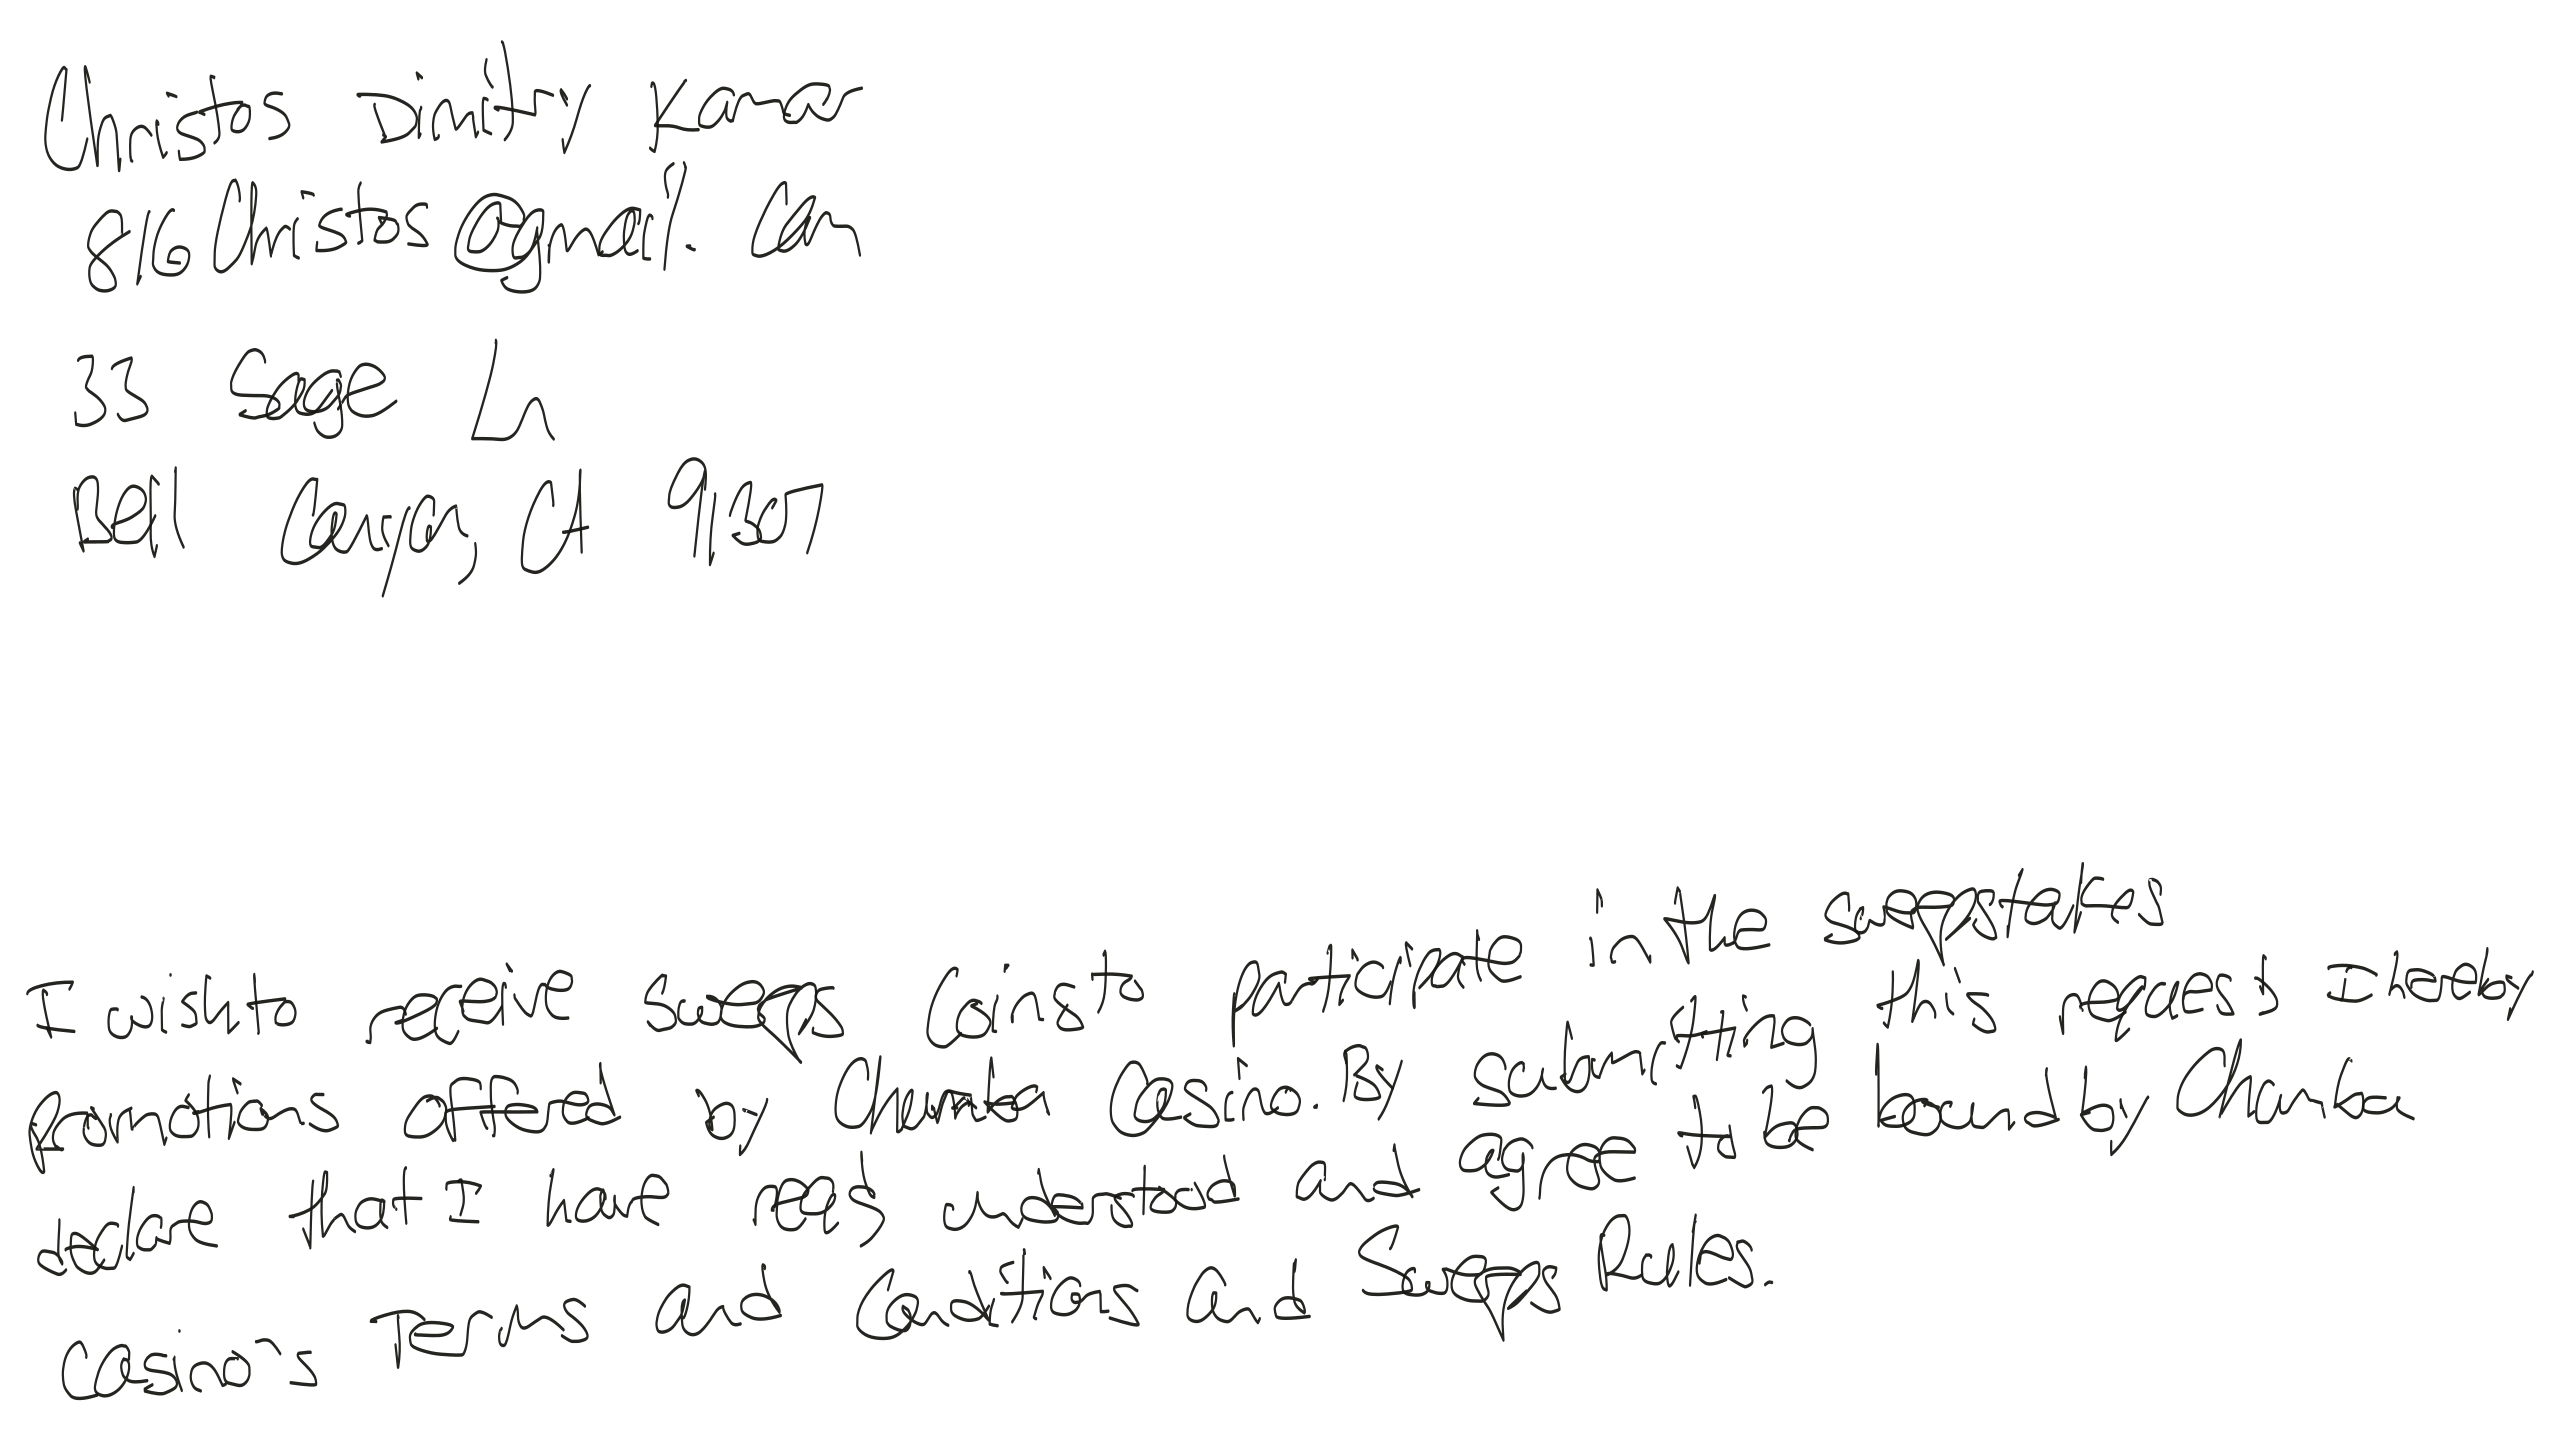 Christos Dimitry Kamar
816Christos@gmail.com
33 Sage Ln
Bell Canyon, CA 91307
I wish to receive sweeps coins to participate in the sweepstakes
promotions offered by Chumba Casino. By submitting this request I hereby
declare that I have read understood and agree to be bound by Chumba
Casino's Terms and Conditions and Sweeps Rules.